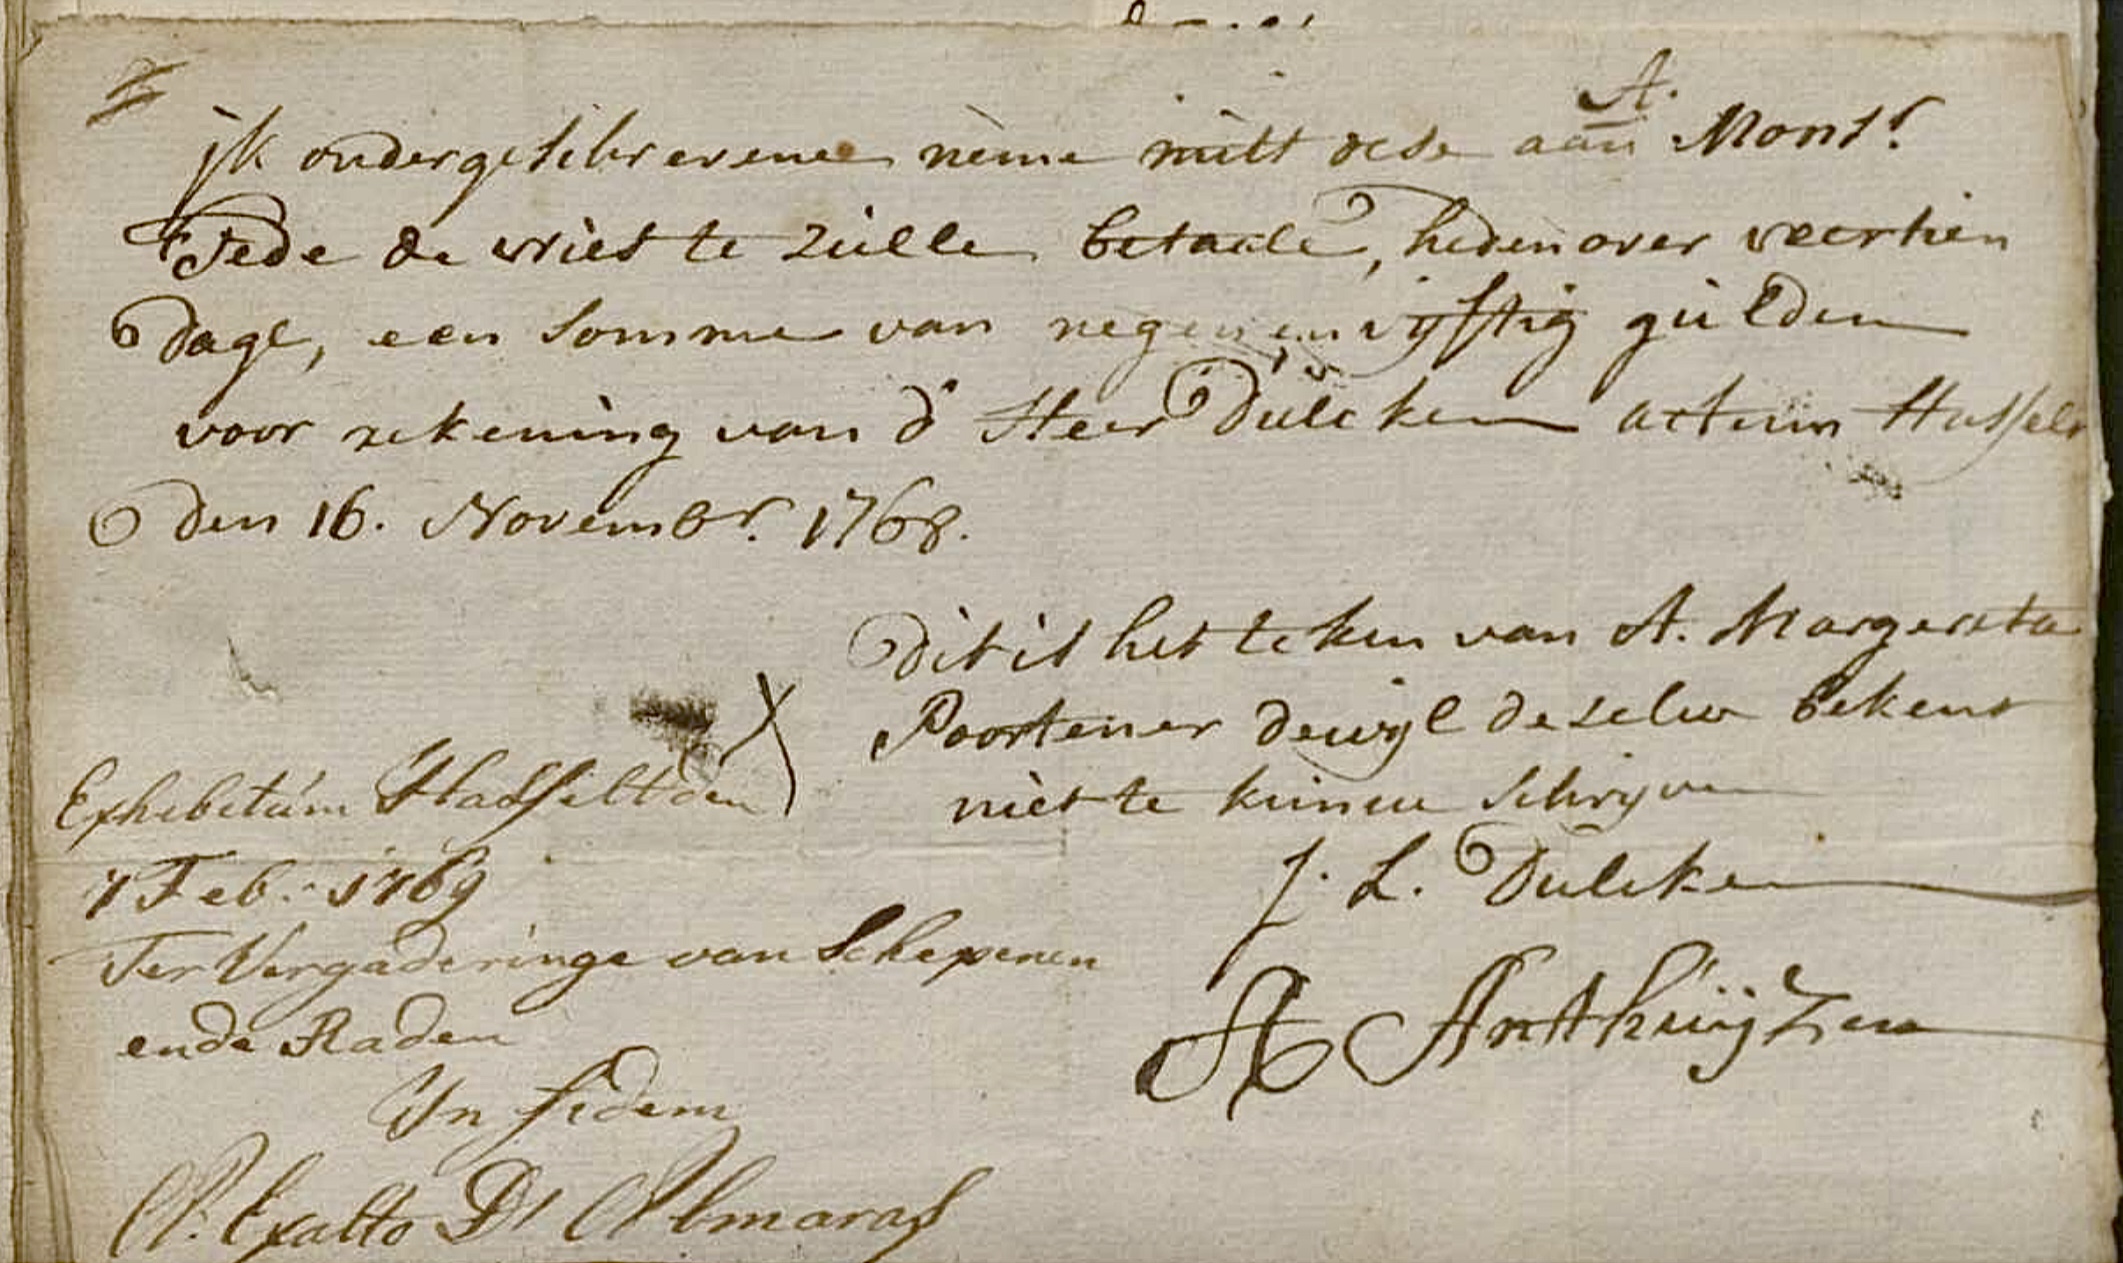 A.
ik ondergeschrevene neme mitt dese aan Monsr.
Fede de vries te zulle betaale, heden over veertien
dage, een somme van negenenvyftig gulden
voor rekening van d' Heer Dulcken actum Hasselt
den 16. Novembr. 1768.
Dit is het teken van A. Margereta
Poortener dewijl deselve bekent
niet te kunnen schryven
X
J. L. Dulcken
A Anthuijzen
Exhibitum Hasselt den
7 Feb: 1769
Ter Vergaderinge van Schepenen
ende Raden
In fidem
P. Exalto D' Almaras